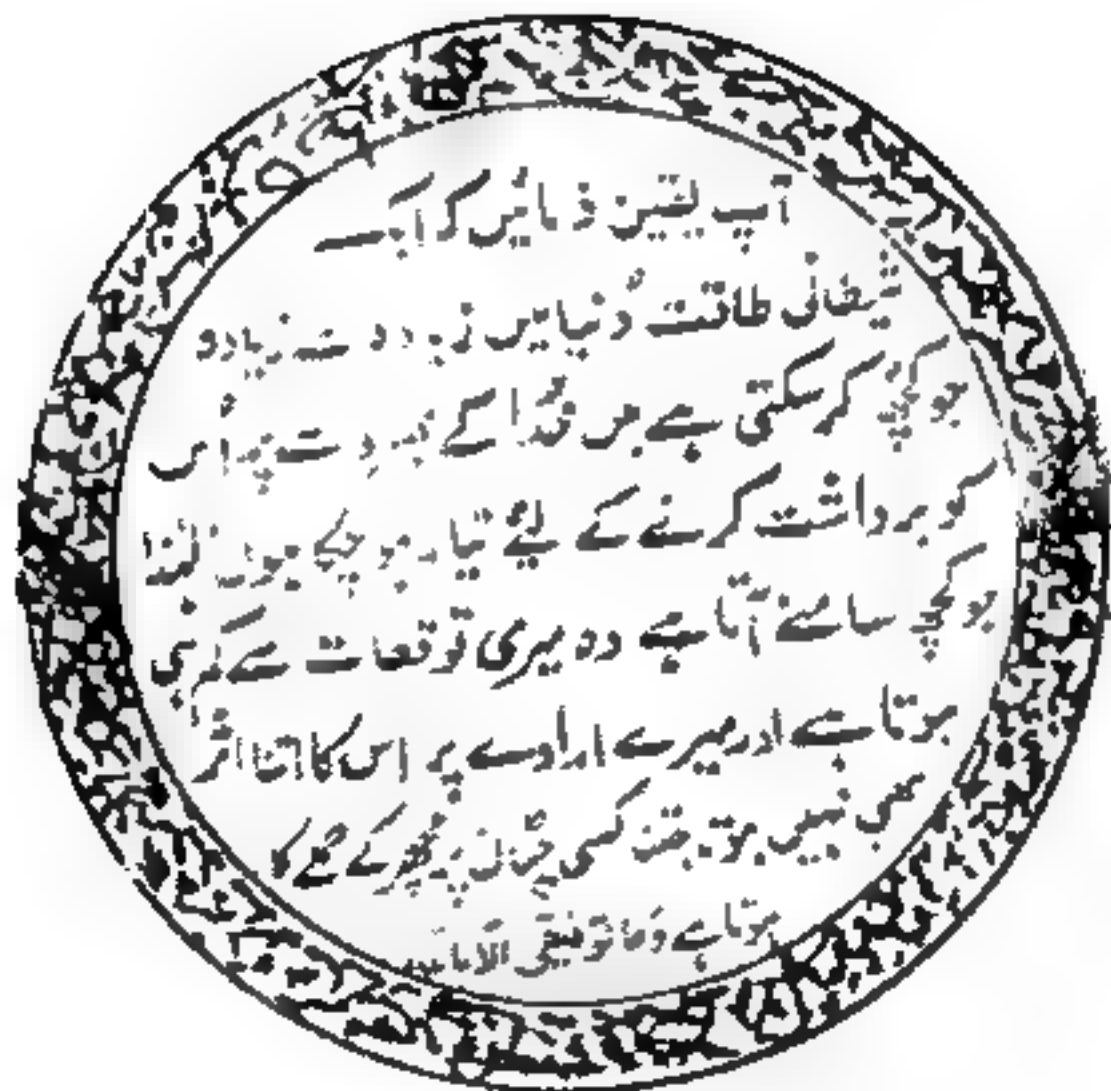 آپ یقین فرمائیں کہ ایک
شیطانی طاقت دُنیا میں زیادہ سے زیادہ
جو کچھ کر سکتی ہے میں خُدا کے بھروسے پر اُس
کو برداشت کرنے کے لیے تیار ہو چکا ہوں لہٰذا
جو کچھ سامنے آتا ہے وہ میری توقعات سے کم ہی
ہوتا ہے اور میرے ارادے پر اس کا اتنا اثر
بھی نہیں ہوتا جتنا کسی چٹان پر مچھر کے کا
ہوتا ہے وَمَا تَوفیقی اِلّا باللہ